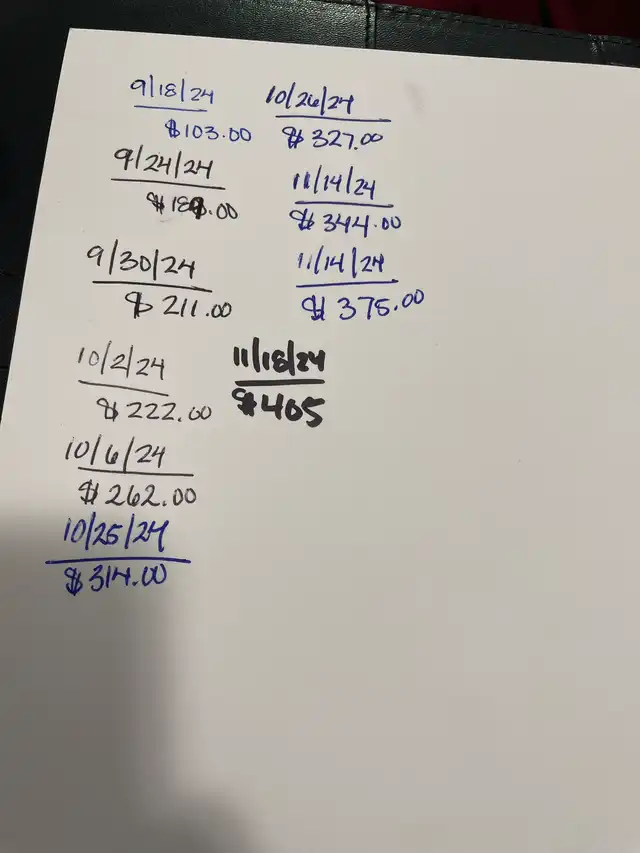 9/18/24
$103.00
9/24/24
9/30/24
$211.00
10/2/24
$222.00
10/6/24
$262.00
10/25/24
$314.00
10/26/24
$327.00
11/14/24
$344.00
11/14/24
$375.00
11/18/24
$405